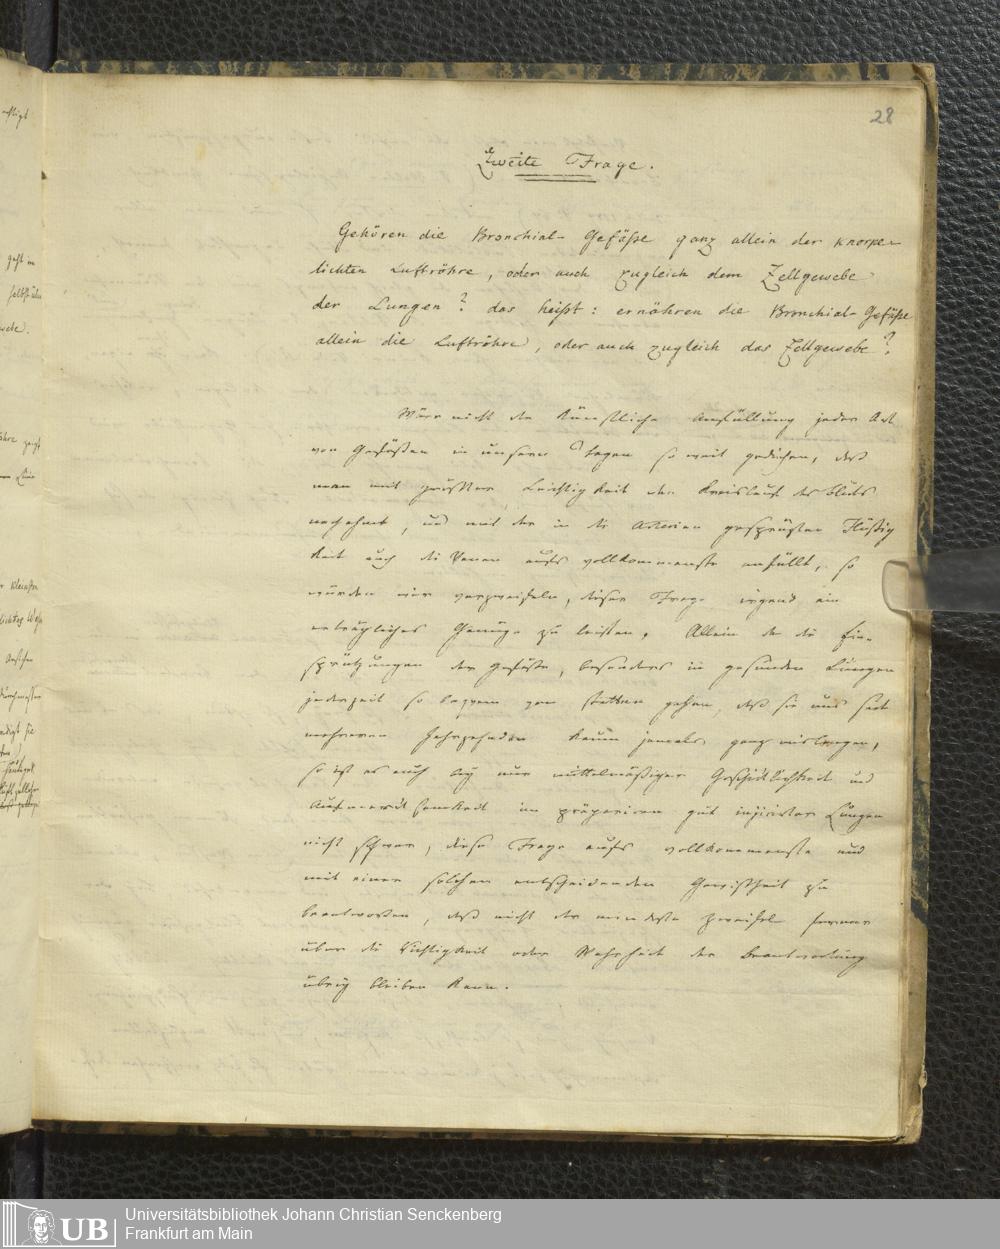 28
Zweite Frage.
Gehören die Bronchial-Gefäße ganz allein der knorpe-
lichten Luftröhre, oder auch zugleich dem Zellgewebe
der Lungen? das heißt: ernähren die Bronchial-Gefäße
allein die Luftröhre, oder auch zugleich das Zellgewebe?
Wäre nicht die künstliche Anfüllung jeder Art
von Gefäßen in unsern Tagen so weit gediehen, daß
man mit größter Leichtigkeit den Kreislauf des Bluts
nachahmt, und mit der in die Arterien gesprützten Flüßig
keit auch die Venen aufs vollkommenste anfüllt, so
würden wir verzweifeln, dieser Frage irgend ein
erträgliches Genüge zu leisten. Allein da die Ein-
sprützungen der Gefäße, besonders in gesunden Lungen
jederzeit so bequem von statten gehen, daß sie uns seit
mehreren Jahrzehnden kaum jemals ganz mislangen,
so ist es auch bey nur mittelmäßiger Geschicklichkeit und
Aufmerksamkeit im präpariren gut injicirter Lungen
nicht schwer, diese Frage aufs vollkommenste und
mit einer solchen entscheidenden Gewißheit zu
beantworten, daß nicht der mindeste Zweifel ferner
über die Richtigkeit oder Wahrheit der Beantwortung
übrig bleiben kann.
geht
selbst
zeigt
kleinsten
Ansicht
Universitätsbibliothek Johann Christian Senckenberg
Frankfurt am Main
UB